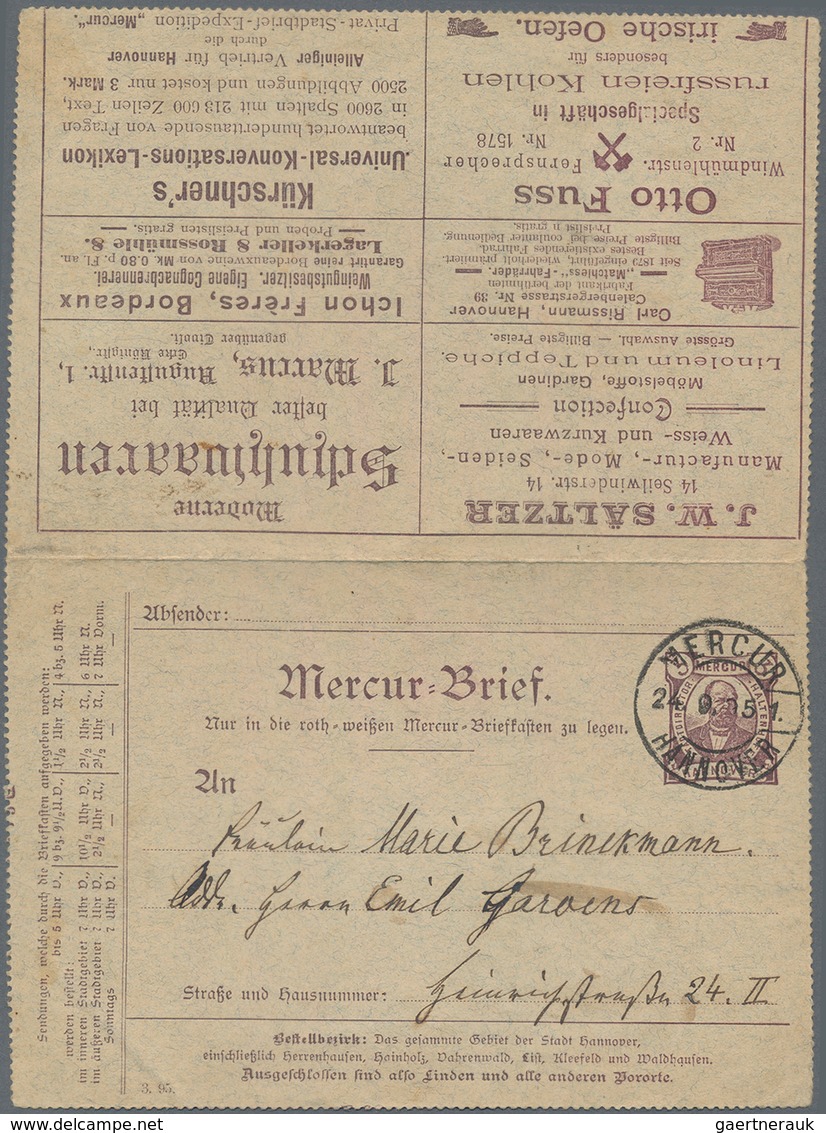 J. W. SÄLTZER
14 Seilwinderstr. 14
Manufactur-, Mode-, Seiden-,
Weiss- und Kurzwaaren
Confection
Möbelstoffe, Gardinen
Linoleum und Teppiche.
Grösste Auswahl. — Billigste Preise.
Moderne
Schuhwaaren
bester Qualität bei
J. Marcus, Augustenstr. 1,
Ecke Königstr.,
gegenüber Tivoli.
Carl Rissmann, Hannover
Calenbergerstrasse Nr. 39
Fabrikant der berühmten
„Matchless“-Fahrräder.
Seit 1879 eingeführt, wiederholt prämiirt.
Bestes existirendes Fahrrad.
Billigste Preise bei coulanter Bedienung.
Preislist n gratis.
Ichon Frères, Bordeaux
Weingutsbesitzer. Eigene Cognacbrennerei.
Garantirt reine Bordeauxweine von Mk. 0.80 p. Fl. an.
Lagerkeller 8 Rossmühle 8.
Proben und Preislisten gratis.
Otto Fuss
Windmühlenstr. Fernsprecher
Nr. 2 Nr. 1578
Specialgeschäft in
russfreien Kohlen
besonders für
irische Oefen.
Kürschner's
Universal-Konversations-Lexikon
beantwortet hunderttausende von Fragen
in 2600 Spalten mit 213 600 Zeilen Text,
2500 Abbildungen und kostet nur 3 Mark.
Alleiniger Vertrieb für Hannover
durch die
Privat-Stadtbrief-Expedition „Mercur“.
Absender:
Mercur-Brief.
Nur in die roth-weißen Mercur-Briefkasten zu legen.
5 MERCUR 5
HANNOVER
MERCUR
24. 9. 95 1.
HANNOVER
An
Fräulein Marie Brinckmann.
Addr. Herrn Emil Garvens
Straße und Hausnummer: Heinrichstraße 24. II
Bestellbezirk: Das gesammte Gebiet der Stadt Hannover,
einschließlich Herrenhausen, Hainholz, Vahrenwald, List, Kleefeld und Waldhausen.
Ausgeschlossen sind also Linden und alle anderen Vororte.
3. 95.
Sendungen, welche durch die Briefkasten aufgegeben werden:
bis 5 Uhr V., 9 bz. 9½ U. V., 1½ Uhr N., 4 bz. 5 Uhr N.
werden bestellt:
im inneren Stadtgebiet 7 Uhr V., 10½ Uhr V., 2½ Uhr N., 6 Uhr N.
im äußeren Stadtgebiet 7 Uhr V., 2½ Uhr N., 2½ Uhr N., 7 Uhr Vorm.
Sonntags 7 Uhr V. — — —
gaertnerauk